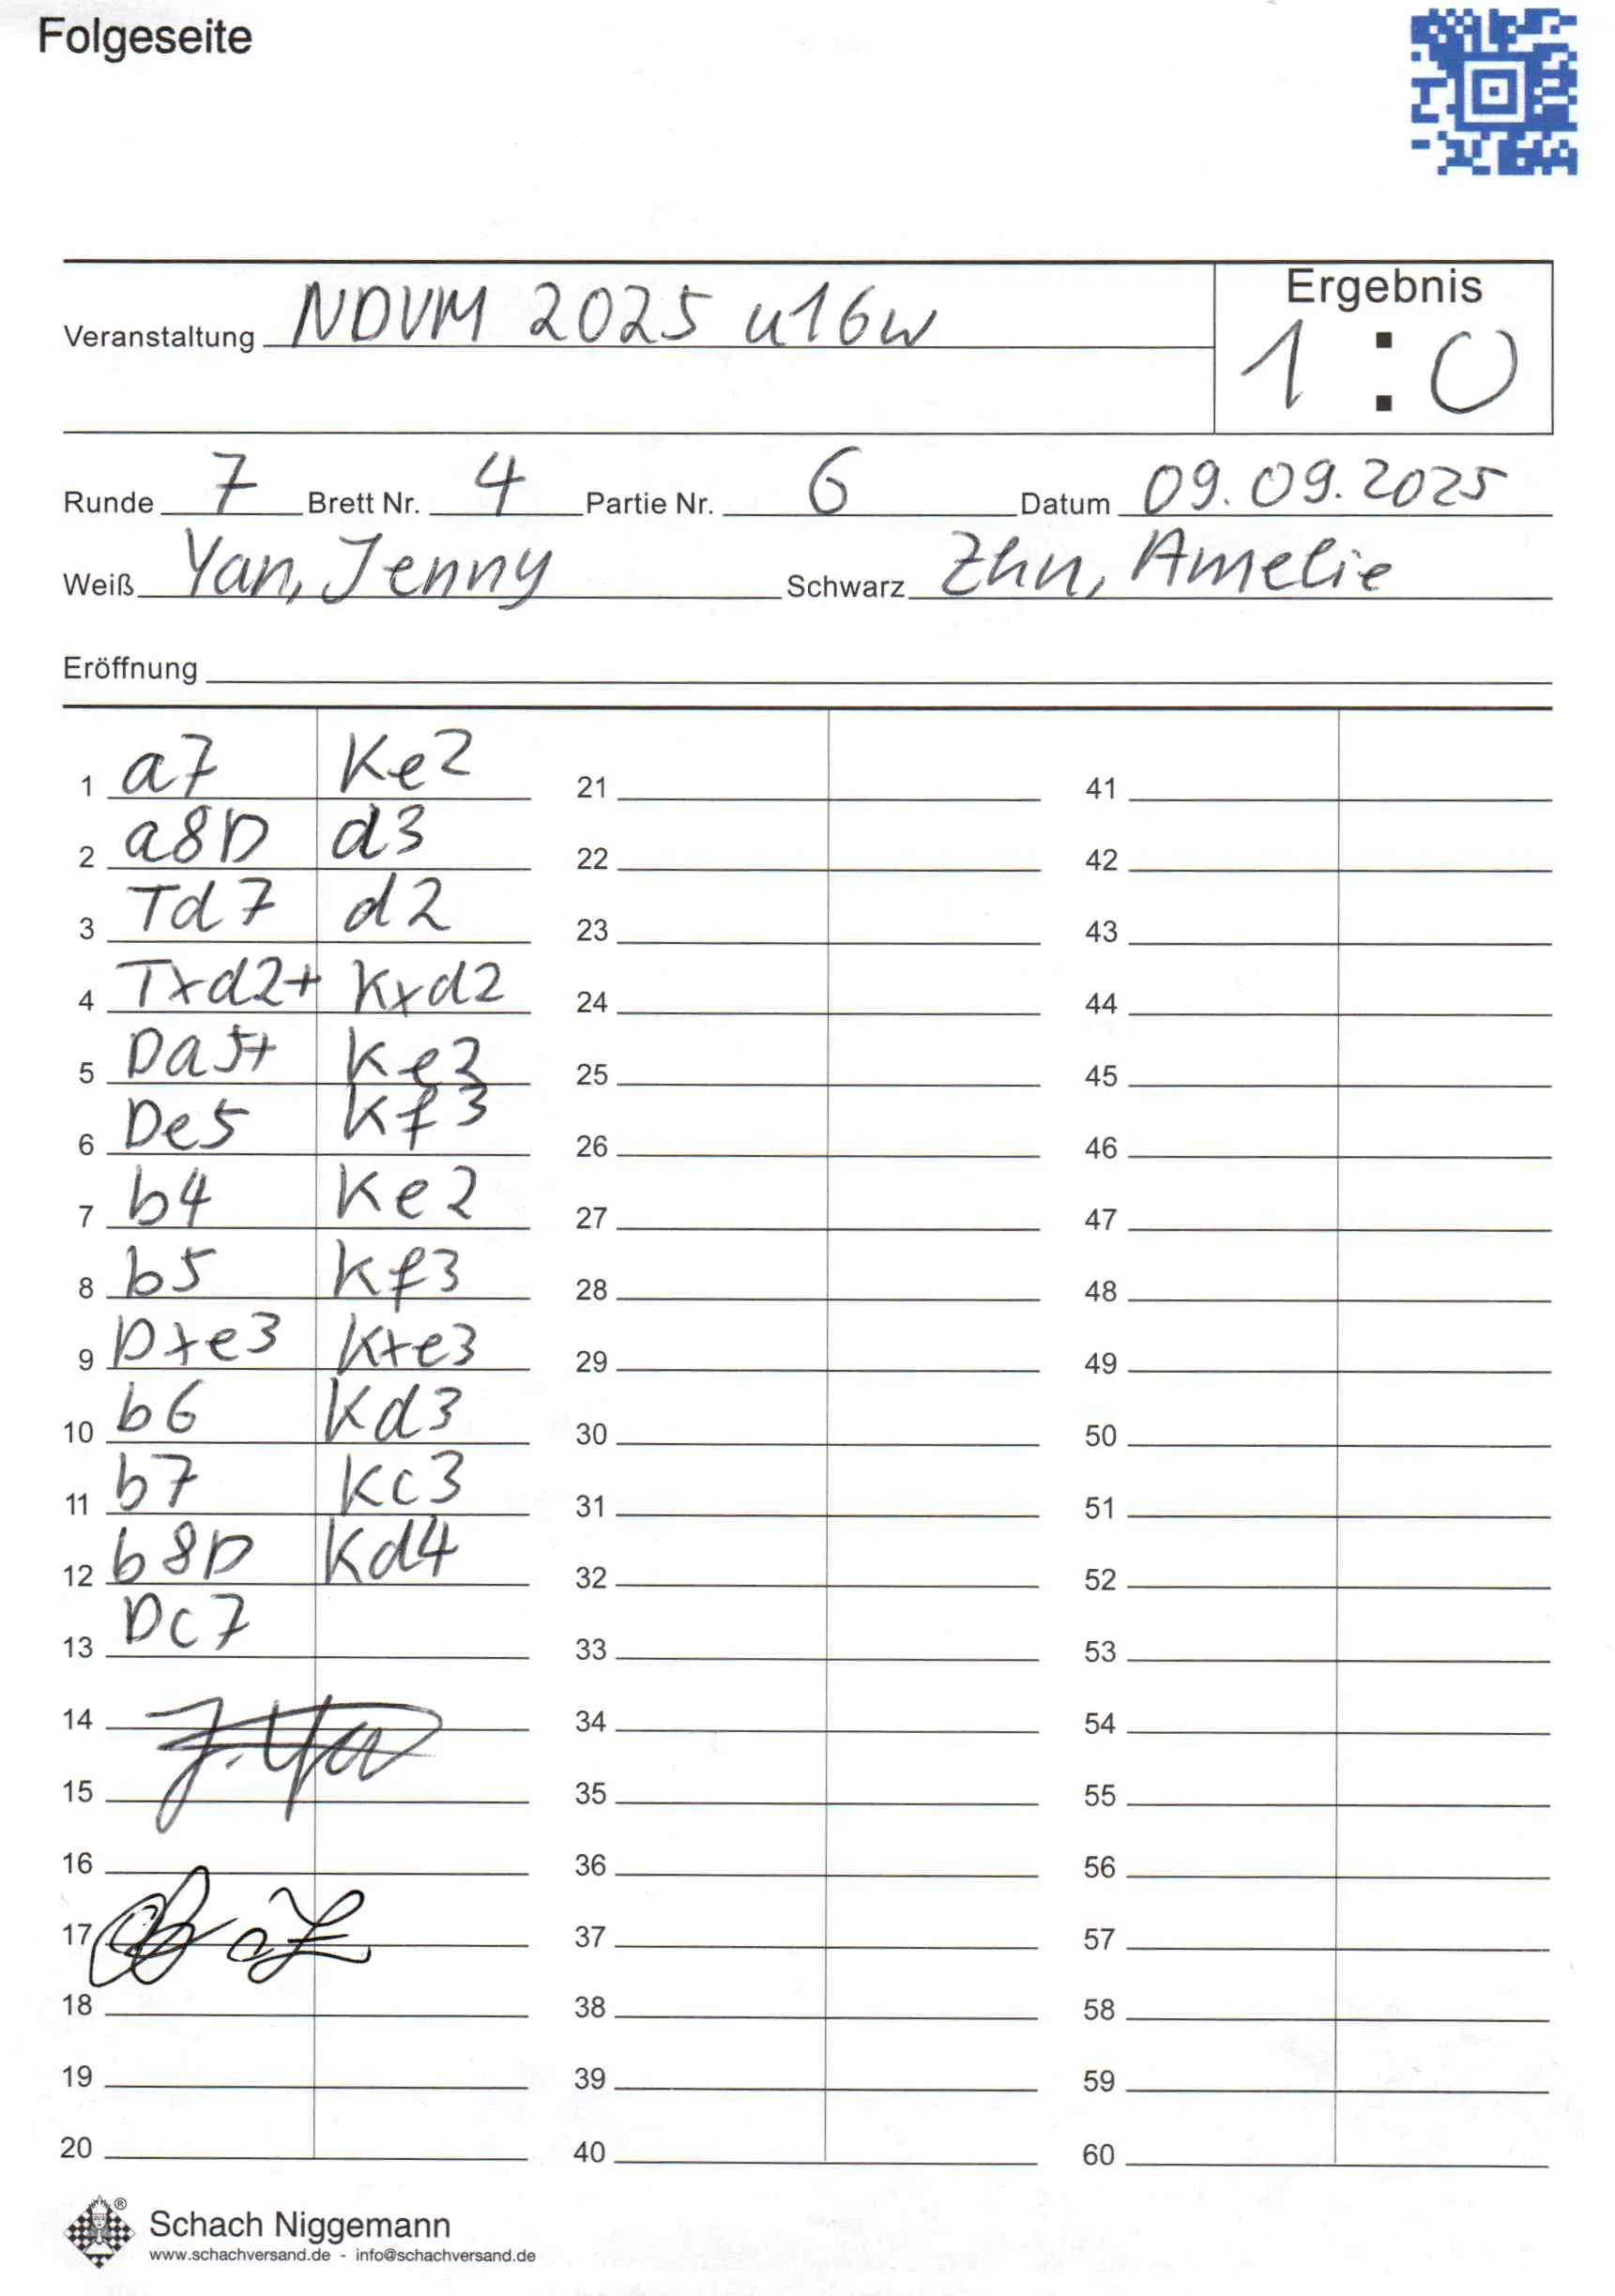 Folgeseite
Veranstaltung NDVM 2025 u16w
Ergebnis
1 : 0
Runde 7 Brett Nr. 4 Partie Nr. 6 Datum 09.09.2025
Weiß Yan, Jenny Schwarz Zhn, Amelie
Eröffnung
1 a7 Ke2 21 41
2 a8D d3 22 42
3 Td7 d2 23 43
4 Txd2+ Kxd2 24 44
5 Da5+ Ke2 25 45
6 De5 Kf3 26 46
7 b4 Ke2 27 47
8 b5 Kf3 28 48
9 Dxe3 Kxe3 29 49
10 b6 Kd3 30 50
11 b7 Kc3 31 51
12 b8D Kd4 32 52
13 Dc7 33 53
14 34 54
15 35 55
16 36 56
17 37 57
18 38 58
19 39 59
20 40 60
Schach Niggemann ®
www.schachversand.de - info@schachversand.de